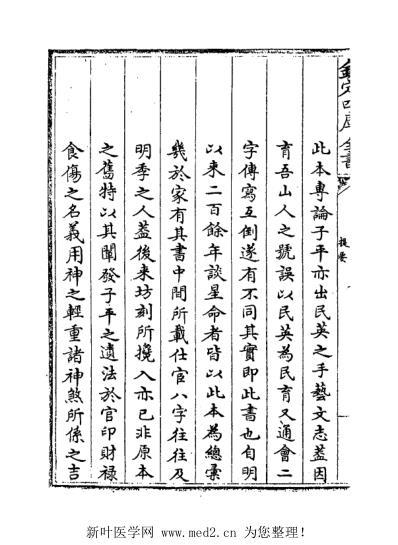 欽定四庫全書
提要
此本專論子平亦出民英之手藝文志蓋因
育吾山人之號誤以民英為民育又通會二
字傳寫互倒遂有不同其實即此書也自明
以来二百餘年談星命者皆以此本為總彙
幾於家有其書中間所載仕宦八字往往及
明季之人蓋後来坊刻所攙入亦已非原本
之舊特以其闡發子平之遺法於官印財祿
食傷之名義用神之輕重諸神煞所係之吉
新叶医学网 www.med2.cn 为您整理！